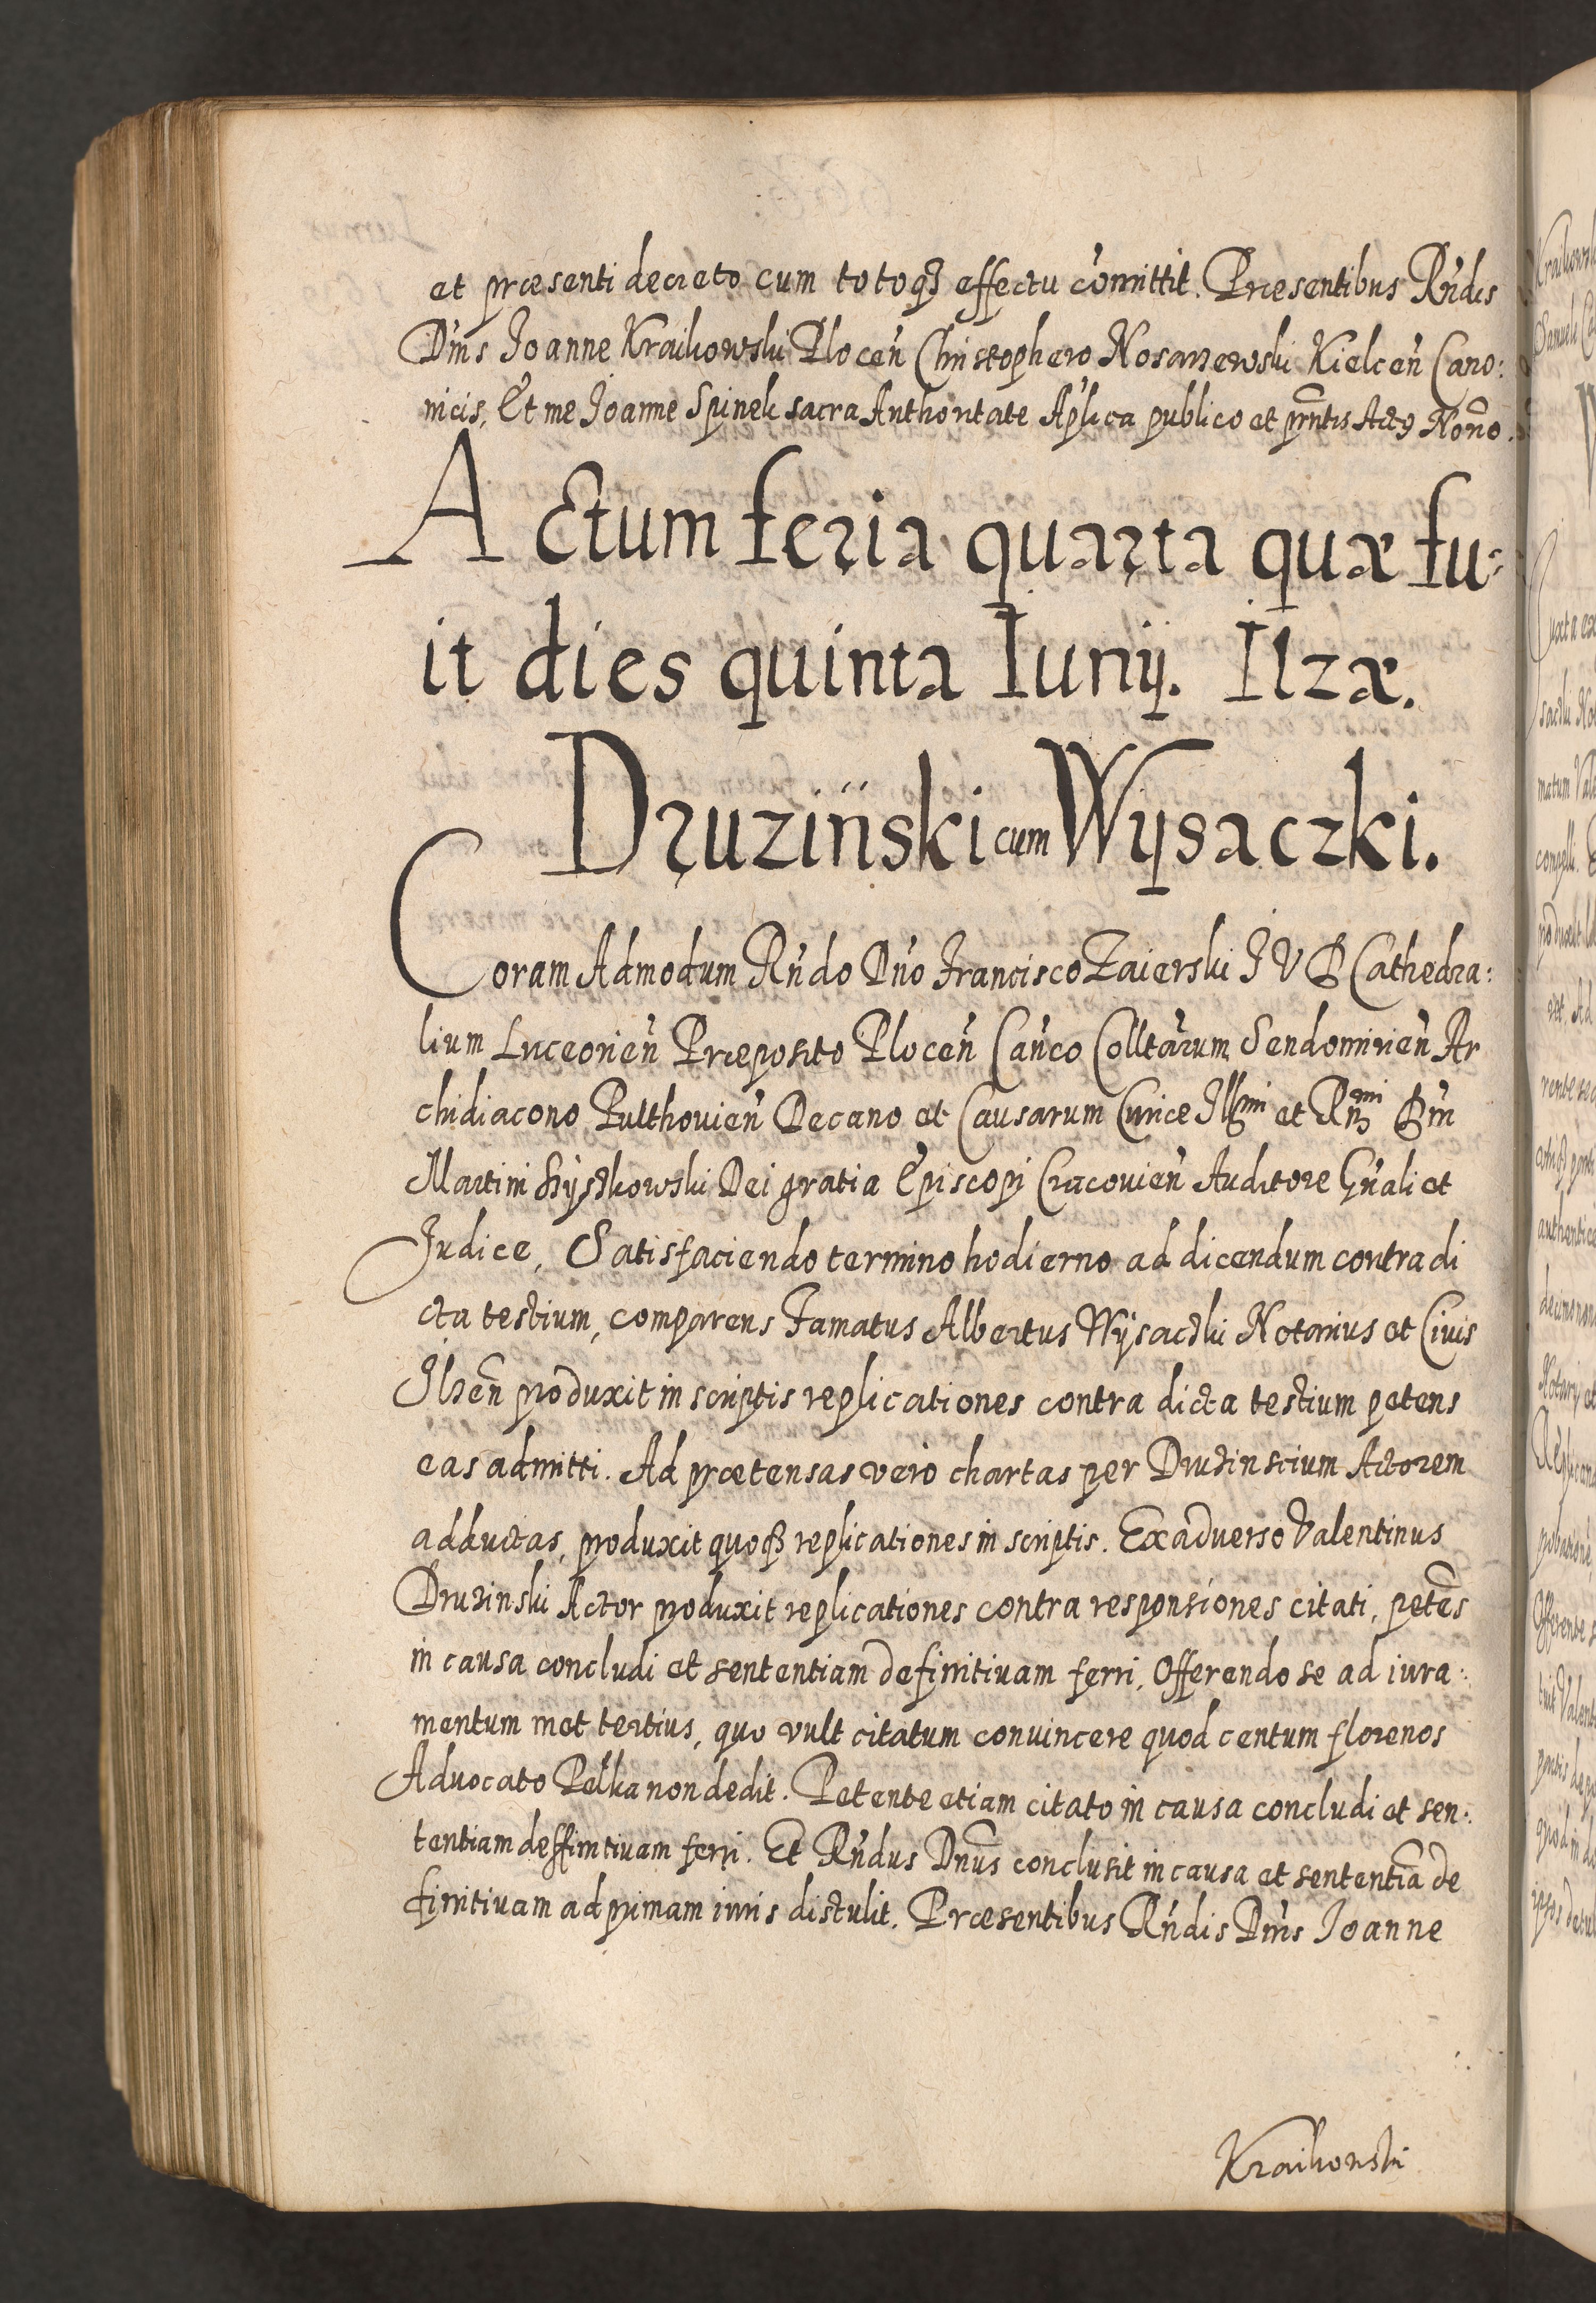 et præsenti decreto cum totoq₃ effectu com̃ittit. Præsentibus Rńdis
Dńis Joanne Kraikowski Plocen̄ Christophero Nosarzewski Kielcen̄ Cano:
nicis, Et me Joanne Spinek sacra Authoritate Aplica publico et pr̄ntis Actꝯ Noño.
Actum feria quarta quæ fu:
it dies quinta Iunij. Ilzæ.
Druzinski cum Wysaczki.
Coram Admodum Rńdo Dńo Francisco Zaierski J V D Cathedra:
lium Luceorien̄ Præposito Plocen̄ Cańco Colltarum Sendomirien̄ Ar
chidiacono Pulthovien̄ Decano et Causarum Curiæ Illmi et Rńmi Dńi
Martini Szyszkowski Dei gratia Episcopi Cracovien̄ Auditore Gńali et
Judice, Satisfaciendo termino hodierno ad dicendum contra di
cta testium, comparens Famatus Albertus Wysaczki Notarius et Civis
Ilzen̄ produxit in scriptis replicationes contra dicta testium petens
eas admitti. Ad prætensas vero chartas per Druzinscium Actorem
adductas, produxit quoq₃ replicationes in scriptis. Ex adverso Valentinus
Druzinski Actor produxit replicationes contra responsiones citati, petēs
in causa concludi et sententiam definitivam ferri, Offerendo se ad iura:
mentum met tertius, quo vult citatum convincere quod centum florenos
Advocato Pelka non dedit. Petente etiam citato in causa concludi et sen:
tentiam deffinitivam ferri. Et Rńdus Dnūs conclusit in causa et sententiā de
finitivam ad primam iuris distulit. Præsentibus Rńdis Dńis Joanne
Kraikowski